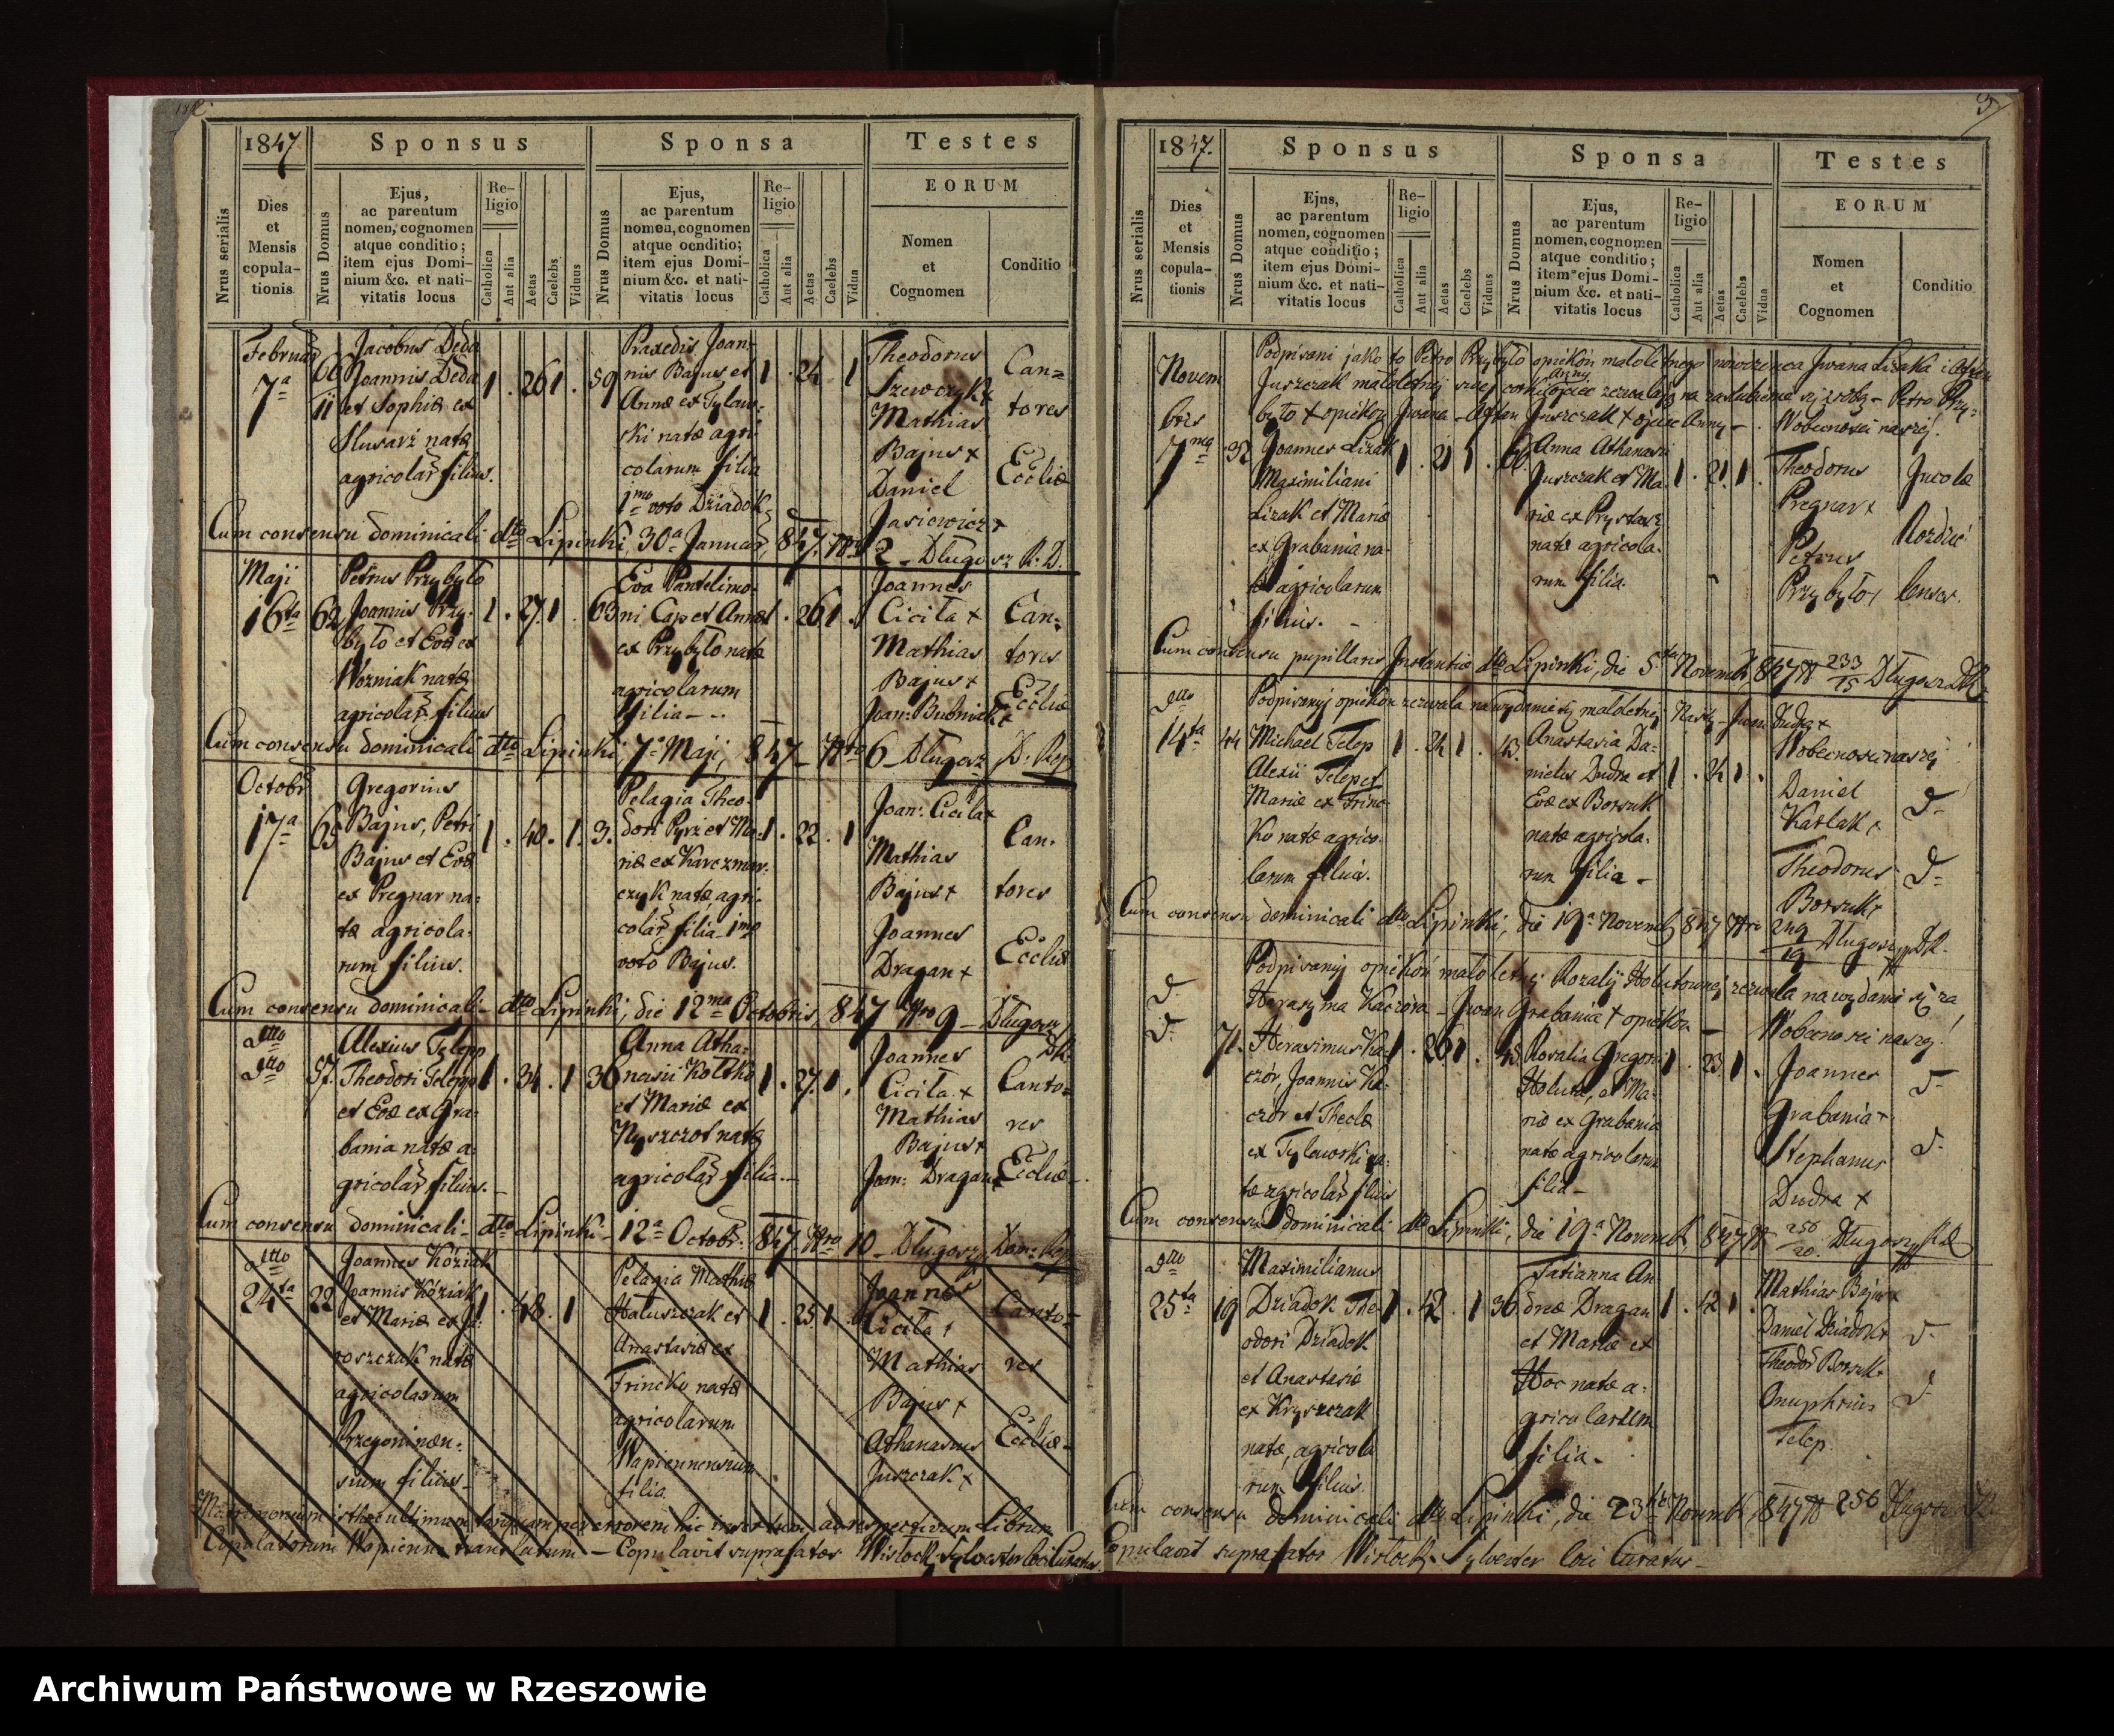 1847
Sponsus
Sponsa
Testes
Nrus serialis
Dies
et
Mensis
copula-
tionis
Nrus Domus
Ejus,
ac parentum
nomen, cognomen
atque conditio;
item ejus Domi-
nium &c. et nati-
vitatis locus
Re-
ligio
Catholica
Aut alia
Aetas
Caelebs
Viduus
Nrus Domus
Ejus,
ac parentum
nomen, cognomen
atque conditio;
item ejus Domi-
nium &c. et nati-
vitatis locus
Re-
ligio
Catholica
Aut alia
Aetas
Caelebs
Vidua
EORUM
Nomen
et
Cognomen
Conditio
7a
Jacobus Deda
Joannis Deda
et Sophiæ ex
Slusarz natæ
filius.
1 . 26 1 .
59
Praxedis Joan-
nis Bajus et
Annæ ex Tylaw-
ski natæ agri-
colarum filia
1mo voto Dziadok
1 . 24 1
Theodorus
Szewczyk x
Mathias
Bajus x
Daniel
Jasiewicz x
Can=
tores
Eccliæ
Cum consensu dominicali dto Lipinki, 30a Januar, 847 Nro 2 – Długosz R. D.
Maji
16ta
62
Petrus Przybyło
Joannis Przy-
było et Evæ ex
Wozniak natæ
filius
1 . 27 1 .
63
Eva Pantelimo-
ni Cap et Annæ
ex Przybyło natæ
agricolarum
filia –
1 . 26 1 .
Joannes
Cicila x
Mathias
Bajus x
Joan: Bubniak x
Can-
tores
Eccliæ
Cum consensu dominicali dto Lipinki, 7a Maji, 847 – Nro 6 – Długosz D. Rep
17a
65
Gregorius
Bajus, Petri
Bajus et Evæ
ex Pregnar na-
tæ agricola-
rum filius.
1 . 40 . 1 .
3.
Pelagia Theo-
dori Pyrz et Ma-
riæ ex Karczmar-
czyk natæ agri-
filia – 1mo
voto Bajus.
1 . 22 . 1
Joan: Cicila x
Mathias
Bajus x
Joannes
Dragan x
Can-
tores
Eccliæ
Cum consensu dominicali – dto Lipinki, die 12ma Octobris, 847 Nro 9 – Długosz
DR.
dtto
dtto
57.
Alexius Telep
Theodori Telep
et Evæ ex Gra-
bania natæ a-
filius. –
1 . 34 . 1
36
Anna Atha-
nasii Koltko
et Mariæ ex
natæ
filia. –
1 . 27. 1 .
Joannes
Cicila x
Mathias
Bajus x
Joan: Dragan x
Canto-
res
Eccliæ –
Cum consensu dominicali – dto Lipinki – 12a Octobr. 847 – Nro 10 – Długosz Dom: Rep
dtto
24ta
22
Joannes Kóziak
Joannis Kóziak
et Mariæ ex Ja-
roszczak natæ
agricolarum
Przegoninen-
sium filius –
1 . 48 . 1
Pelagia Mathiæ
Haluszczak et
Anastasiæ ex
Trincko natæ
agricolarum
Wapiennensium
filia
1 . 25 1 .
Joannes
Cicila x
Mathias
Bajus x
Athanasius
Juszczak x
Canto-
res
Eccliæ –
Matrimonium isthoc ultimum tanquam per errorem hic insertum, ad respectivum Librum
Copulatorum Wapienne translatum – Copulavit suprafatus Wisłocki Sylvester loci Curatus
3
1847.
Sponsus
Sponsa
Testes
Nrus serialis
Dies
et
Mensis
copula-
tionis
Nrus Domus
Ejus,
ac parentum
nomen, cognomen
atque conditio;
item ejus Domi-
nium &c. et nati-
vitatis locus
Re-
ligio
Catholica
Aut alia
Aetas
Caelebs
Viduus
Nrus Domus
Ejus,
ac parentum
nomen, cognomen
atque conditio;
item ejus Domi-
nium &c. et nati-
vitatis locus
Re-
ligio
Catholica
Aut alia
Aetas
Caelebs
Vidua
EORUM
Nomen
et
Cognomen
Conditio
Novem
bris
Podpisani jako to Petro Przybyło opiekón małoletnego nowożenca Jwana Lizaka i
Juszczak małoletnej swej corki Anny ojciec zezwalają na zaslubienie się – Petro Przy-
było x opiekón Jwana – Juszczak x ojciec Anny – Wobecnosci naszej.
7ma
32
Joannes Lizak
Maximiliani
Lizak et Mariæ
ex Grabania na-
tæ agricolarum
filius. –
1 . 21 1 .
66.
Anna Athanasii
Juszczak et Ma-
riæ ex Prystasz
natæ agricola-
rum filia.
1 . 21. 1 .
Theodorus
Pregnar x
Petrus
Przybyło x
Jncolæ
Cum consensu pupillaris Jnstantiæ dto Lipinki, die 5ta Novemb, 847 N 233/15 Długosz DR.
dtto
14ta
44
Podpisanyj opiekón zezwala na wydanie się małoletnej – Jwan Dudra x
Wobecnosci naszej
Michael Telep
Alexii Telep et
Mariæ ex Trinc-
ko natæ agrico-
larum filius.
1 . 24 1 .
Anastasia Da-
nielis Dudra et
Evæ ex Borsuk
natæ agricola-
rum filia –
1 . 24 1 .
Daniel
Katlak x
Theodorus
Borsuk x
Cum consensu dominicali dto Lipinki, die 19a Novemb 847 Nro 249/19 Długosz DR.
Podpisanyj opiekón małoletnej Rozalij Holutownej zezwala na wydanie się za
Harasyma Kaczora – Jwan Grabania x opiekón – Wobecnosci naszej!
71.
Herasimus Ka-
czor, Joannis Ka-
czor et Theclæ
ex Tylawski na-
filius
1 . 26 1 .
45.
Rosalia Gregorii
Holuta, et Ma-
riæ ex Grabania
natæ agricolarum
filia –
1 . 23. 1 .
Joannes
Grabania x
Stephanus
Dudra x
Cum consensu dominicali dto Lipinki, die 19a Novemb, 847 N 256/20. Długosz
dtto
25ta
19
Maximilianus
Dziadok The-
odori Dziadok
et Anastasiæ
ex Kryszczak
natæ, agricola
rum filius.
1 . 42 . 1
36
Tatianna An
dreæ Dragan
et Mariæ ex
Hoc natæ a-
gricolarum
filia –
1 . 42 1 .
Mathias Bajus x
Daniel Dziadok x
Theodor Borsuk x
Onuphrius
Telep
Cum consensu dominicali dto Lipinki, die 23tia Novemb, 847 N 256 Długosz
Copulavit suprafatus Wisłocki Sylvester loci Curatus –
Archiwum Państwowe w Rzeszowie